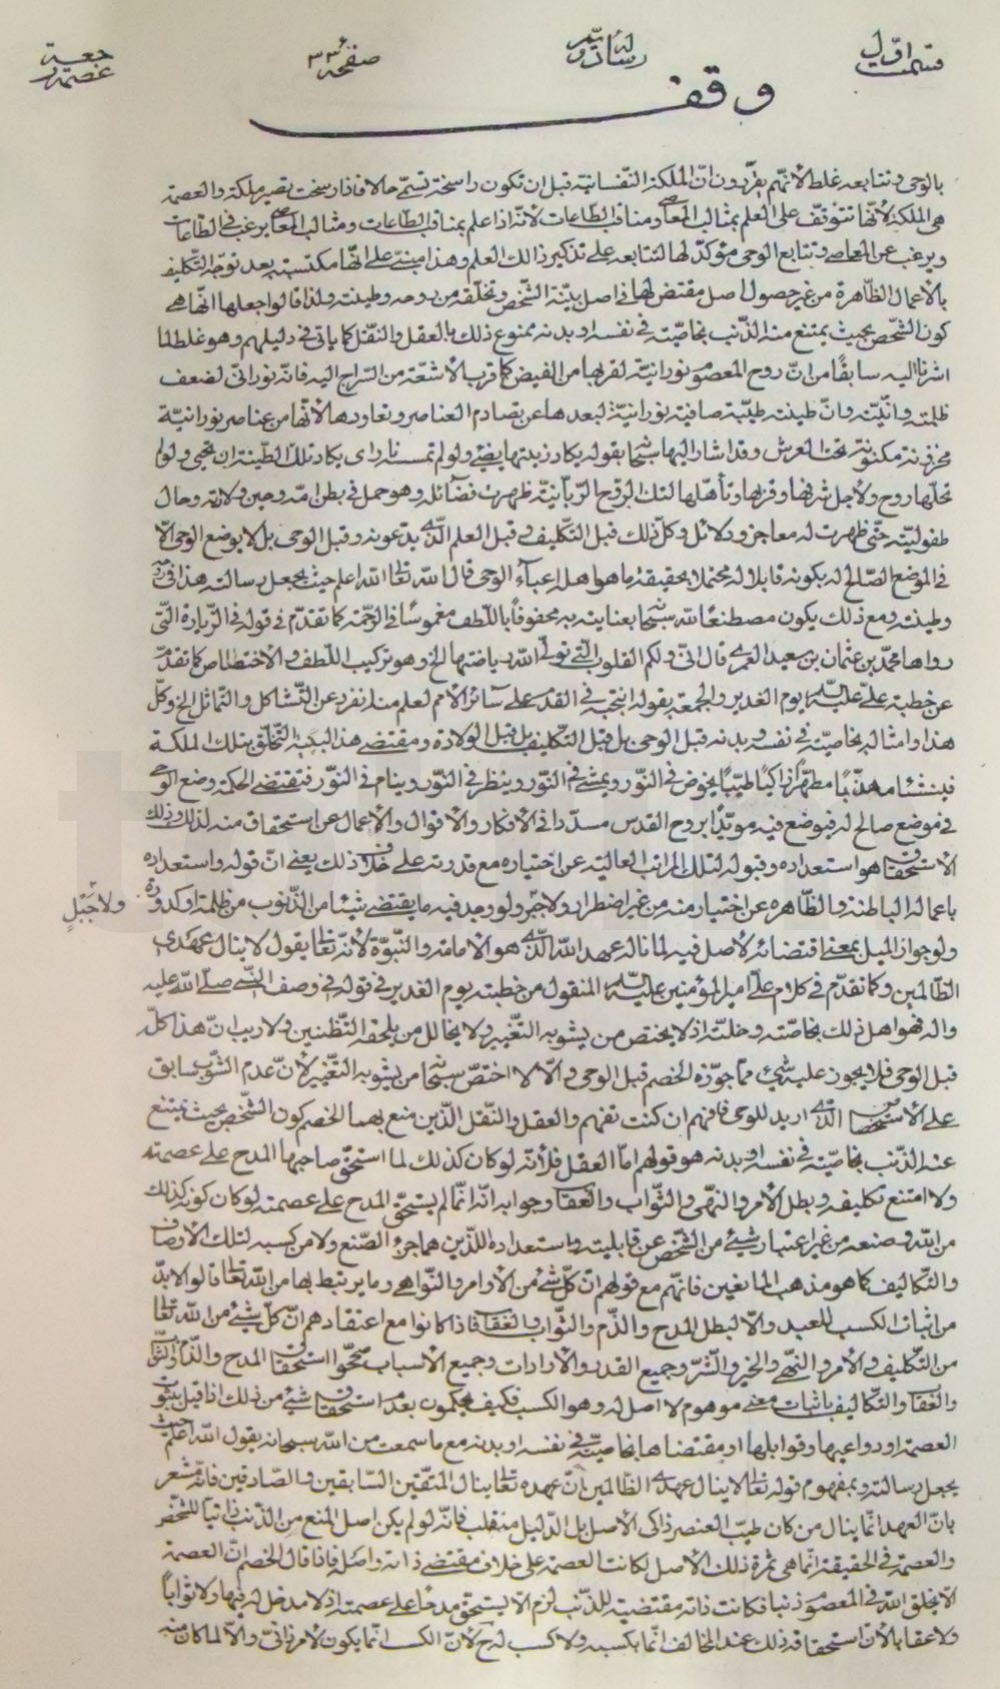 قسمت اوّل رسالهٔ دویم صفحهٔ ٣٣ رجعة و عصمة
وقف
بالوحی و تتابعه غلط لأنّهم یقرّرون انّ الملکة النّفسانیّة قبل ان تکون راسخة تسمّی حالا فاذا رسخت تصیر ملکة والعصمة
هی الملکة لأنّها تتوقّف علی العلم بمثالب المعاصی ومناقب الطّاعات لأنّه اذا علم بمناقب الطّاعات ومثالب المعاصی یرغب فی الطّاعات
ویرغب عن المعاصی وتتابع الوحی مؤکّد لها لتتابعه علی تذکیر ذالک العلم وهذا مبنیّ علی انّها مکتسبة بعد توجّه التّکلیف
بالاعمال الظّاهرة من غیر حصول اصل مقتض لها فی اصل بنیة الشّخص وتخلّقه من روحه وطینته ولذا قالوا جعلها انّها هی
کون الشّخص بحیث یمتنع منه الذّنب بخاصیّة فی نفسه او بدنه ممنوع ذلک بالعقل والنّقل کما یاتی فی دلیلهم وهو غلط لما
اشرنا الیه سابقًا من انّ روح المعصوم نورانیّة لقربها من الفیض کما قرب الأشعّة من السّراج الیه فانّه نورانیّ لضعف
ظلمته وانّیّته وانّ طینته طیّبة صافیة نورانیّة لبعدها عن تصادم العناصر وتعاودها لأنّها من عناصر نورانیّة
مخزونة مکنونة تحت العرش وقد اشار الیها سبحانه بقوله یکاد زیتها یضیٓء ولو لم تمسسه نار ای یکاد تلک الطّینة ان تحیی ولو لم
تحلّها روح ولأجل شرفها وقربها وتأهّلها لتلک الرّوح الرّبّانیّة ظهرت فضآئله وهو حمل فی بطن امّه وحین ولادته وحال
طفولیّته حتّی ظهرت له معاجز ودلائل وکلّ ذلک قبل التّکلیف وقبل العلم الّذی یدّعونه وقبل الوحی بل لا یوضع الوحی الّا
فی الموضع الصّالح له بکونه قابلا له محتملا بحقیقة ما هو اهله اعبآء الوحی قال اللّه تعالی اللّه اعلم حیث یجعل رسالته هذا فی
وطینته ومع ذلک یکون مصطنعًا للّه سبحانه بعنایته به محفوفًا باللّطف مغموسًا فی الرّحمة کما تقدّم فی قوله فی الزّیارة الّتی
رواها محمّد بن عثمان بن سعید العمری قال انّی ولکم القلوب الّتی تولّی اللّه ریاضتها الخ وهو ترکیب اللّطف والاختصاص کما تقدّم
عن خطبة علیّ علیه السّلام یوم الغدیر والجمعة بقوله انتجبه فی القدم علی سآئر الأمم لعلم منه انفرد عن التّشاکل والتّماثل الخ وکلّ
هذا وامثاله بخاصیّة فی نفسه وبدنه قبل الوحی بل قبل التّکلیف بل قبل الولادة ومقتضی هذا التّخلّق بتلک الملکة
فینشئا مهذّبًا مطهّرًا زاکیًا طیّبًا یخوض فی النّور ویمشی فی النّور وینظر فی النّور وینام فی النّور فتقتضی الحکمة وضع الوحی
فی موضع صالح له فیوضع فیه مویّدًا بروح القدس مسدّدا فی الافکار والاقوال والأعمال عن استحقاق منه لذلک وذلک
الاستحقاق هو استعداده وقبوله لتلک المراتب العالیة عن اختیاره مع قدرته علی خلاف ذلک یعنی انّ قوله واستعداده
باعماله الباطنة والظّاهره عن اختیار منه من غیر اضطرار ولا جبر ولو وجد فیه ما یقتضی شیئا من الذّنوب من ظلمة او کدورة
ولا جَبْلٍ
ولو جواز المیل بمعنی اقتضائه لأصل فیه لما ناله عهد اللّه الّذی هو الامامة والنّبوّة لأنّه تعالی یقول لا ینال عهدی
الظّالمین وکما تقدّم فی کلام علیّ امیر المؤمنین علیه السّلام المنقول من خطبته یوم الغدیر فی قوله فی وصف النّبی صلّی اللّه علیه
واله فهو اهل ذلک بخاصّته وخلّته اذ لا یختصّ من یشوبه التّغییر ولا یخالل من یلحقه التّظنین ولا ریب انّ هذا کلّه
قبل الوحی فلا یجوز علیه شیٓء ممّا جوّزه الخصم قبل الوحی والّا لما اختصّ سبحانه من یشوبه التّغییر لأنّ عدم الشّوب سابق
علی الأستخصاص الّذی ارید للوحی فافهم ان کنت تفهم والعقل والنّقل الّذین منع بهما الخصم کون الشّخص بحیث یمتنع
عنه الذّنب بخاصیّة فی نفسه او بدنه هو قولهم امّا العقل فلأنّه لو کان کذلک لما استحقّ صاحبها المدح علی عصمته
ولا امتنع تکلیفه وبطل الأمر والنّهی والثّواب والعقاب وجوابه انّه انّما لم یستحقّ المدح علی عصمته لو کان کونه کذلک
من اللّه وصنعه من غیر اعتبار شیٓء من الشّخص عن قابلیّته واستعداده اللّذین هما جزء الصّنع ولا من کسبه لتلک الأوصاف
والتّکالیف کما هو مذهب المانعین فانّهم مع قولهم انّ کلّ شیٓء من الأوامر والنّواهی وما یرتبط بها من اللّه تعالی قالوا لا بدّ
من اثبات الکسب للعبد والّا لبطل المدح والذّم والثّواب والعقاب فاذا کانوا مع اعتقادهم انّ کلّ شیٓء من اللّه تعالی
من التّکلیف والأمر والنّهی والخیر والشّرّ وجمیع القدر والأرادات وجمیع الأسباب صحّحوا استحقاق المدح والذّم والثّواب
والعقاب والتّکالیف باثبات معنی موهوم لا اصل له وهو الکسب فکیف یحکمون بعدم استحقاق شیٓء من ذلک اذا قیل بثبوت
العصمة او دواعیها وقوابلها او مقتضاها بخاصیّة فی نفسه او بدنه مع ما سمعت من اللّه سبحانه یقول اللّه اعلم حیث
یجعل رسالته وبمفهوم قوله تعالی لا ینال عهدی الظّالمین انّ عهده تعالی ینال المتّقین السّابقین والصّادقین فانّه مشعر
بانّ العهد انّما ینال من کان طیّب العنصر ذاکی الأصل بل الدّلیل منقلب فانّه لو لم یکن اصل المنع من الذّنب ذاتیّا للشّخص
والعصمة فی الحقیقة انّما هی ثمرة ذلک الأصل لکانت العصمة علی خلاف مقتضی ذاته واصله فاذا قال الخصم انّ العصمة
الّا یخلق اللّه فی المعصوم ذنبا فکانت ذاته مقتضیة للذّنب لزم الّا یستحقّ مدحًا علی عصمته اذ لا مدخل له فیها ولا ثوابا
ولا عقابا لأنّ استحقاقه ذلک عند المخالف انّما بکسبه ولا کسب له ح لأنّ الکسب انّما یکون لأمر ذاتیّ والّا لما کان منه